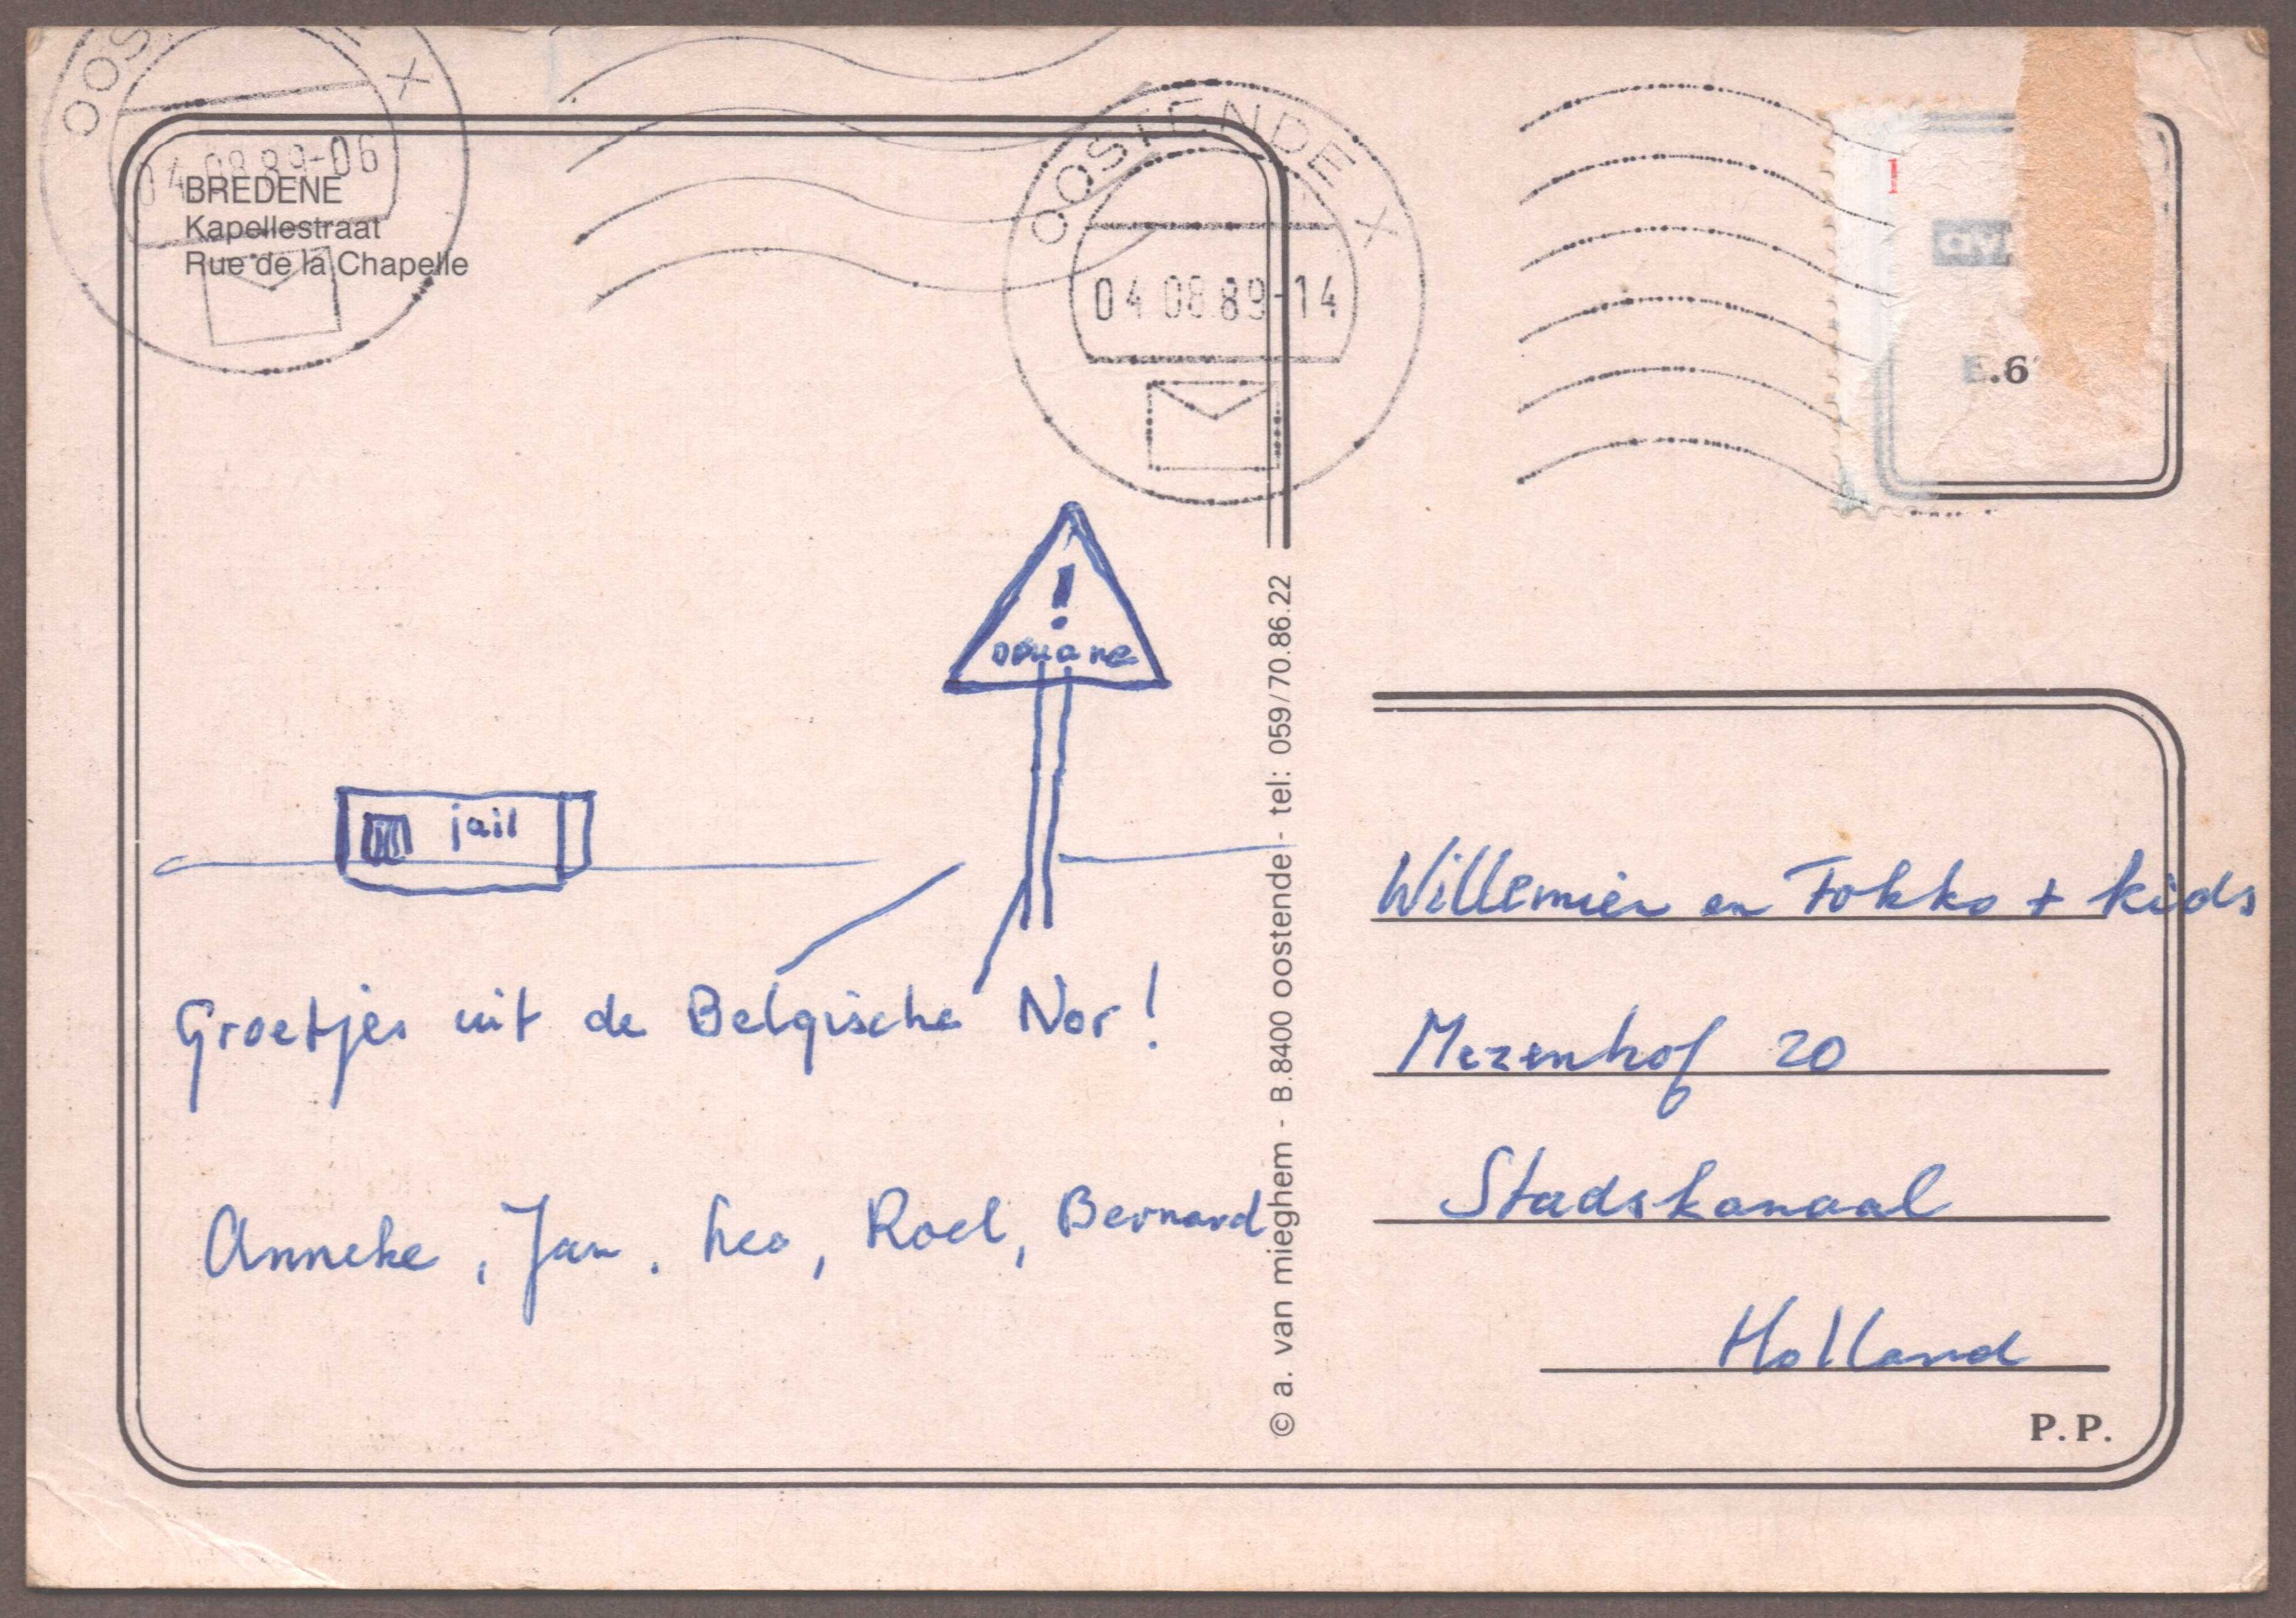 OOS X
04 08 89-06
BREDENE
Kapellestraat
Rue de la Chapelle
OOSTENDE X
04 08 89-14
E.6
!
douane
jail
Groetjes uit de Belgische Nor!
Anneke, Jan, Leo, Roel, Bernard
© a. van mieghem - B.8400 oostende - tel: 059/70.86.22
Willemien en Fokko + kids
Mezenhof 20
Stadskanaal
Holland
P.P.